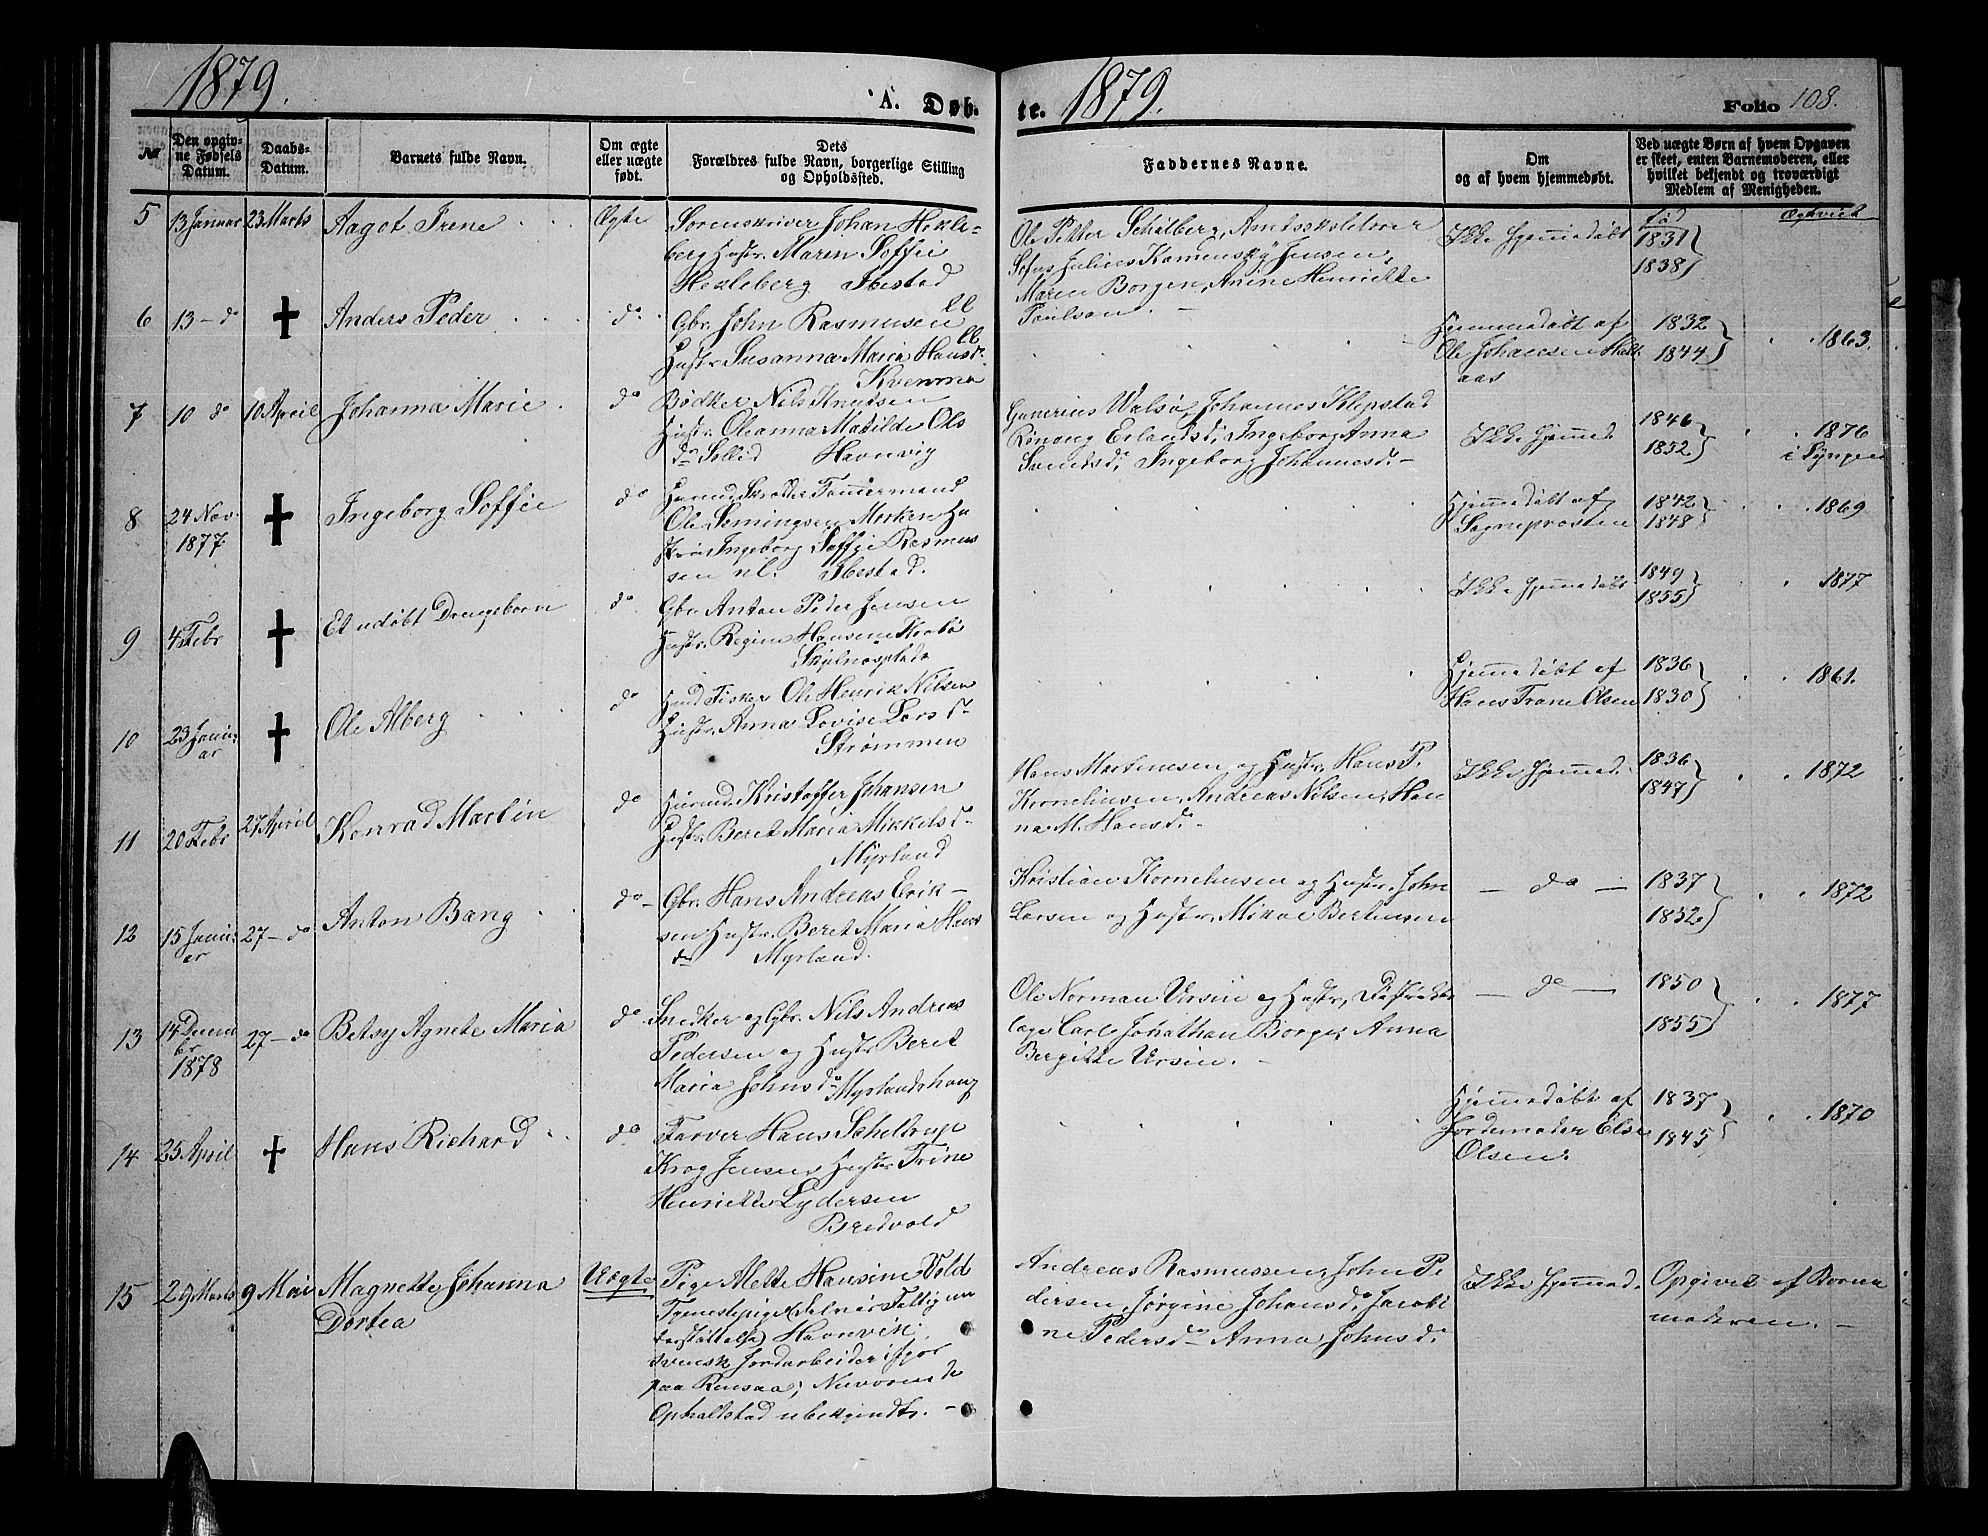 1879.
A. Døb-
te.
1879.
Folio 108.
№
Den opgiv-
ne Fødsels
Datum.
Daabs-
Datum.
Barnets fulde Navn.
Om ægte
eller uægte
født.
Dets
Forældres fulde Navn, borgerlige Stilling
og Opholdssted.
Faddernes Navne.
Om
og af hvem hjemmedøbt.
Ved uægte Børn af hvem Opgaven
er skeet, enten Barnemoderen, eller
hvilket bekjendt og troværdigt
Medlem af Menigheden.
fød
Egteviet
5
13 Januar
23 Marts
Aagot Irene
Ægte
Sorenskriver Johan Hekle-
berg Hustr. Maren Soffie
Hekleberg Ibestad
Ole Petter Schälberg, Amtsskolelærer
Sofus Julius Kamensky Jensen,
Maren Borgen, Anine Henriette
Poulson. —
Ikke hjemmedøbt
1831
1838
6
13 – do
✝
Anders Peder
do
Gbr. John Rasmusen
Hustr. Susanna Maria Hansd.
Kvenmo
Hjemmedøbt af
Ole Johansen
aas
1832
1844
1863.
7
10 do
10 April
Johanna Marie
do
Bødker Nils Knudsen
Hustr. Oleanna Matilde Ols
dr Sollid Havnvig
Gunerius Walsø, Johannes Klepstad
Rønaug Erlandsd, Ingeborg Anna
Svendsd, Ingeborg Johannesd. —
Ikke hjemmed.
1846
1852
1876
i Lyngen
8
24 Nov.
1877.
✝
Ingeborg Soffie
do
Tømmermand
Ole Semingsen Merken Hu
stru Ingeborg Soffie Rasmus
sen Ibestad.
Hjemmedøbt af
Sogneprosten
1842
1848
1869
9
4 Febr
✝
Et udøbt Drengebarn
do
Gbr. Anton Peder Jensen
Hustr. Regine Hansine Krabø
Skjelnesplads
Ikke hjemmedøbt
1849
1855
1877
10
23 Janu-
ar
✝
Ole Alberg
do
Fisker Ole Henrik Nilsen
Hustr. Anna Lovise Larsdr
Strømmen
Hjemmedøbt af
Hans Trane Olsen
1836
1830
1861.
11
20 Febr
27 April
Konrad Martin
do
Kristoffer Johansen
Hustr. Beret Maria Mikkelsd.
Myrland
Hans Martinusen og Hustr. Hans P.
Kornelinsen, Andreas Nilsen, Han
na M. Hansd.
Ikke hjemmed.
1836
1847
1872
12
15 Janu-
ar
27 – do
Anton Bang
do
Gbr. Hans Andreas Erik-
sen Hustr. Beret Maria Hans
dr Myrland.
Kristian Kornelinsen og Hustr. John
Larsen og Hustr. Mikal Bertinsen
— do —
1837
1832
1872
13
14 Decem
br
1878
27 – do
Betsy Agnete Maria
do
Snekker og Gbr. Nils Andreas
Pedersen og Hustr. Beret
Maria Johnsd. Myrlandshaug
Ole Norman Ursin og Hustr, Distrikts
læge Carl Jonathan Borge, Anna
Bergitte Ursin. —
— do —
1850
1855
1877
14
25 April
✝
Hans Richard
do
Farver Hans Scheltrup
Krog Jensen Hustr. Trine
Henriette Lydersen
Bredvold
Hjemmedøbt af
Jordemoder Else
Olsen.
1837
1845
1870
15
29 Marts
9 Mai
Magnette Johanna
Dortea
Uægte
Pige Mette Hansine Vold
Tjenestepige
Havnvik,
svensk Jordarbeider ifjor
paa Rensaa; Nuværende
Opholdsted ubekjendt. —
Andreas Rasmussen, John Pe
dersen, Jørgine Johansd., Jacobi
ne Pedersd. Anna Johnsd.
Ikke hjemmed.
Opgivet af Barne
moderen. —